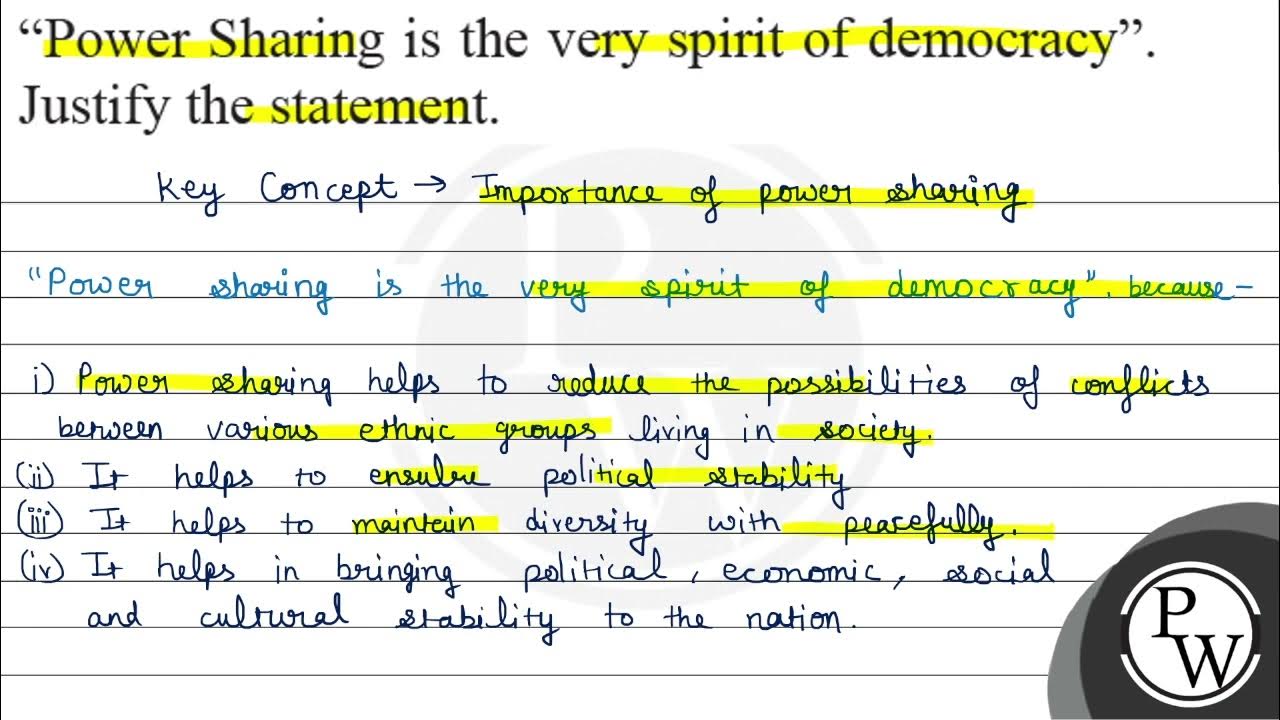 “Power Sharing is the very spirit of democracy”.
Justify the statement.
Key Concept → Importance of power sharing
"Power sharing is the very spirit of democracy", because-
i) Power sharing helps to reduce the possibilities of conflicts
between various ethnic groups living in society.
(ii) It helps to ensure political stability
(iii) It helps to maintain diversity with peacefully.
(iv) It helps in bringing political, economic, social
and cultural stability to the nation.
P
W